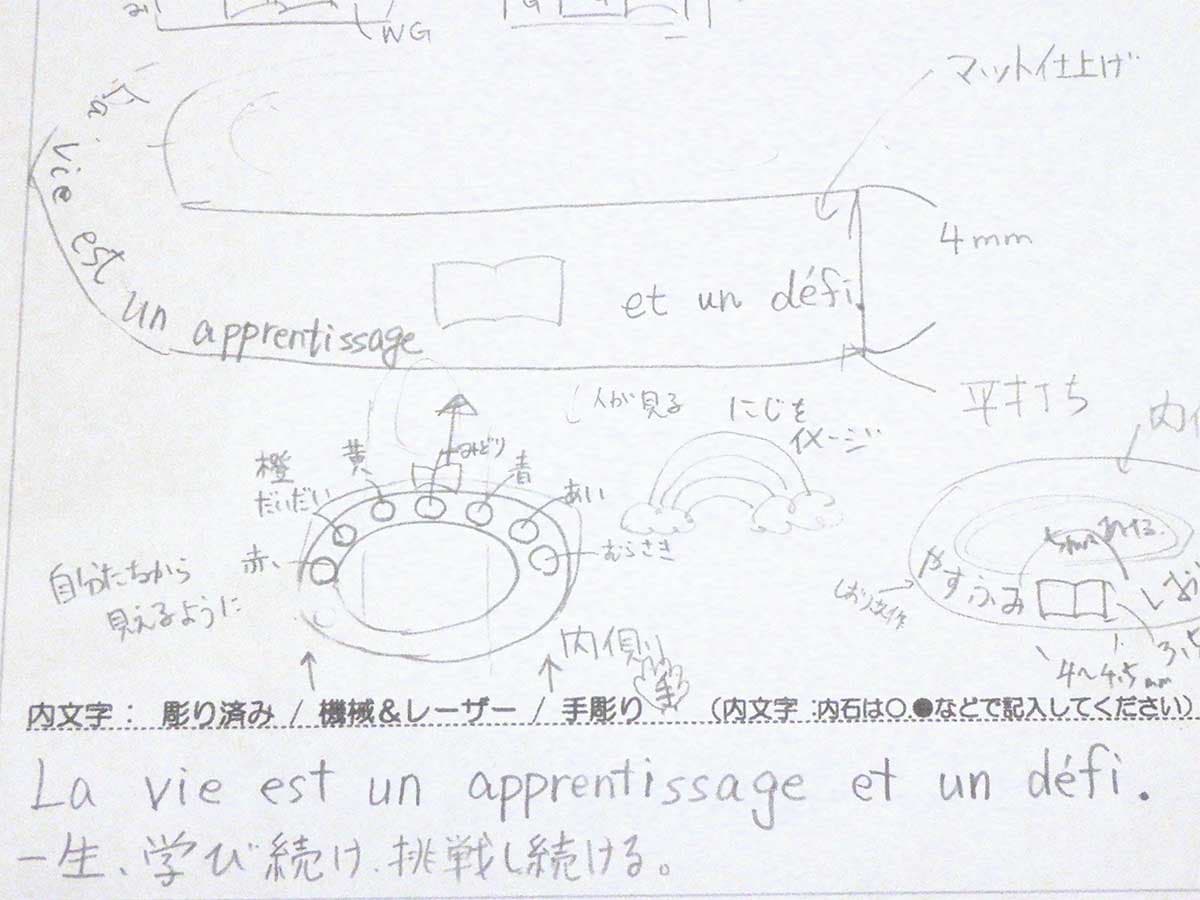 WG
マット仕上げ
La vie est un apprentissage
et un défi.
4mm
平打ち
人が見る
にじを
イメージ
橙
だいだい
黄
みどり
青
あい
むらさき
赤
自分たちから
見えるように
内側
手
やすふみ
3.5
4~4.5mm
内文字 : 彫り済み / 機械&レーザー / 手彫り (内文字 :内石は○.●などで記入してください)
La vie est un apprentissage et un défi.
一生、学び続け、挑戦し続ける。